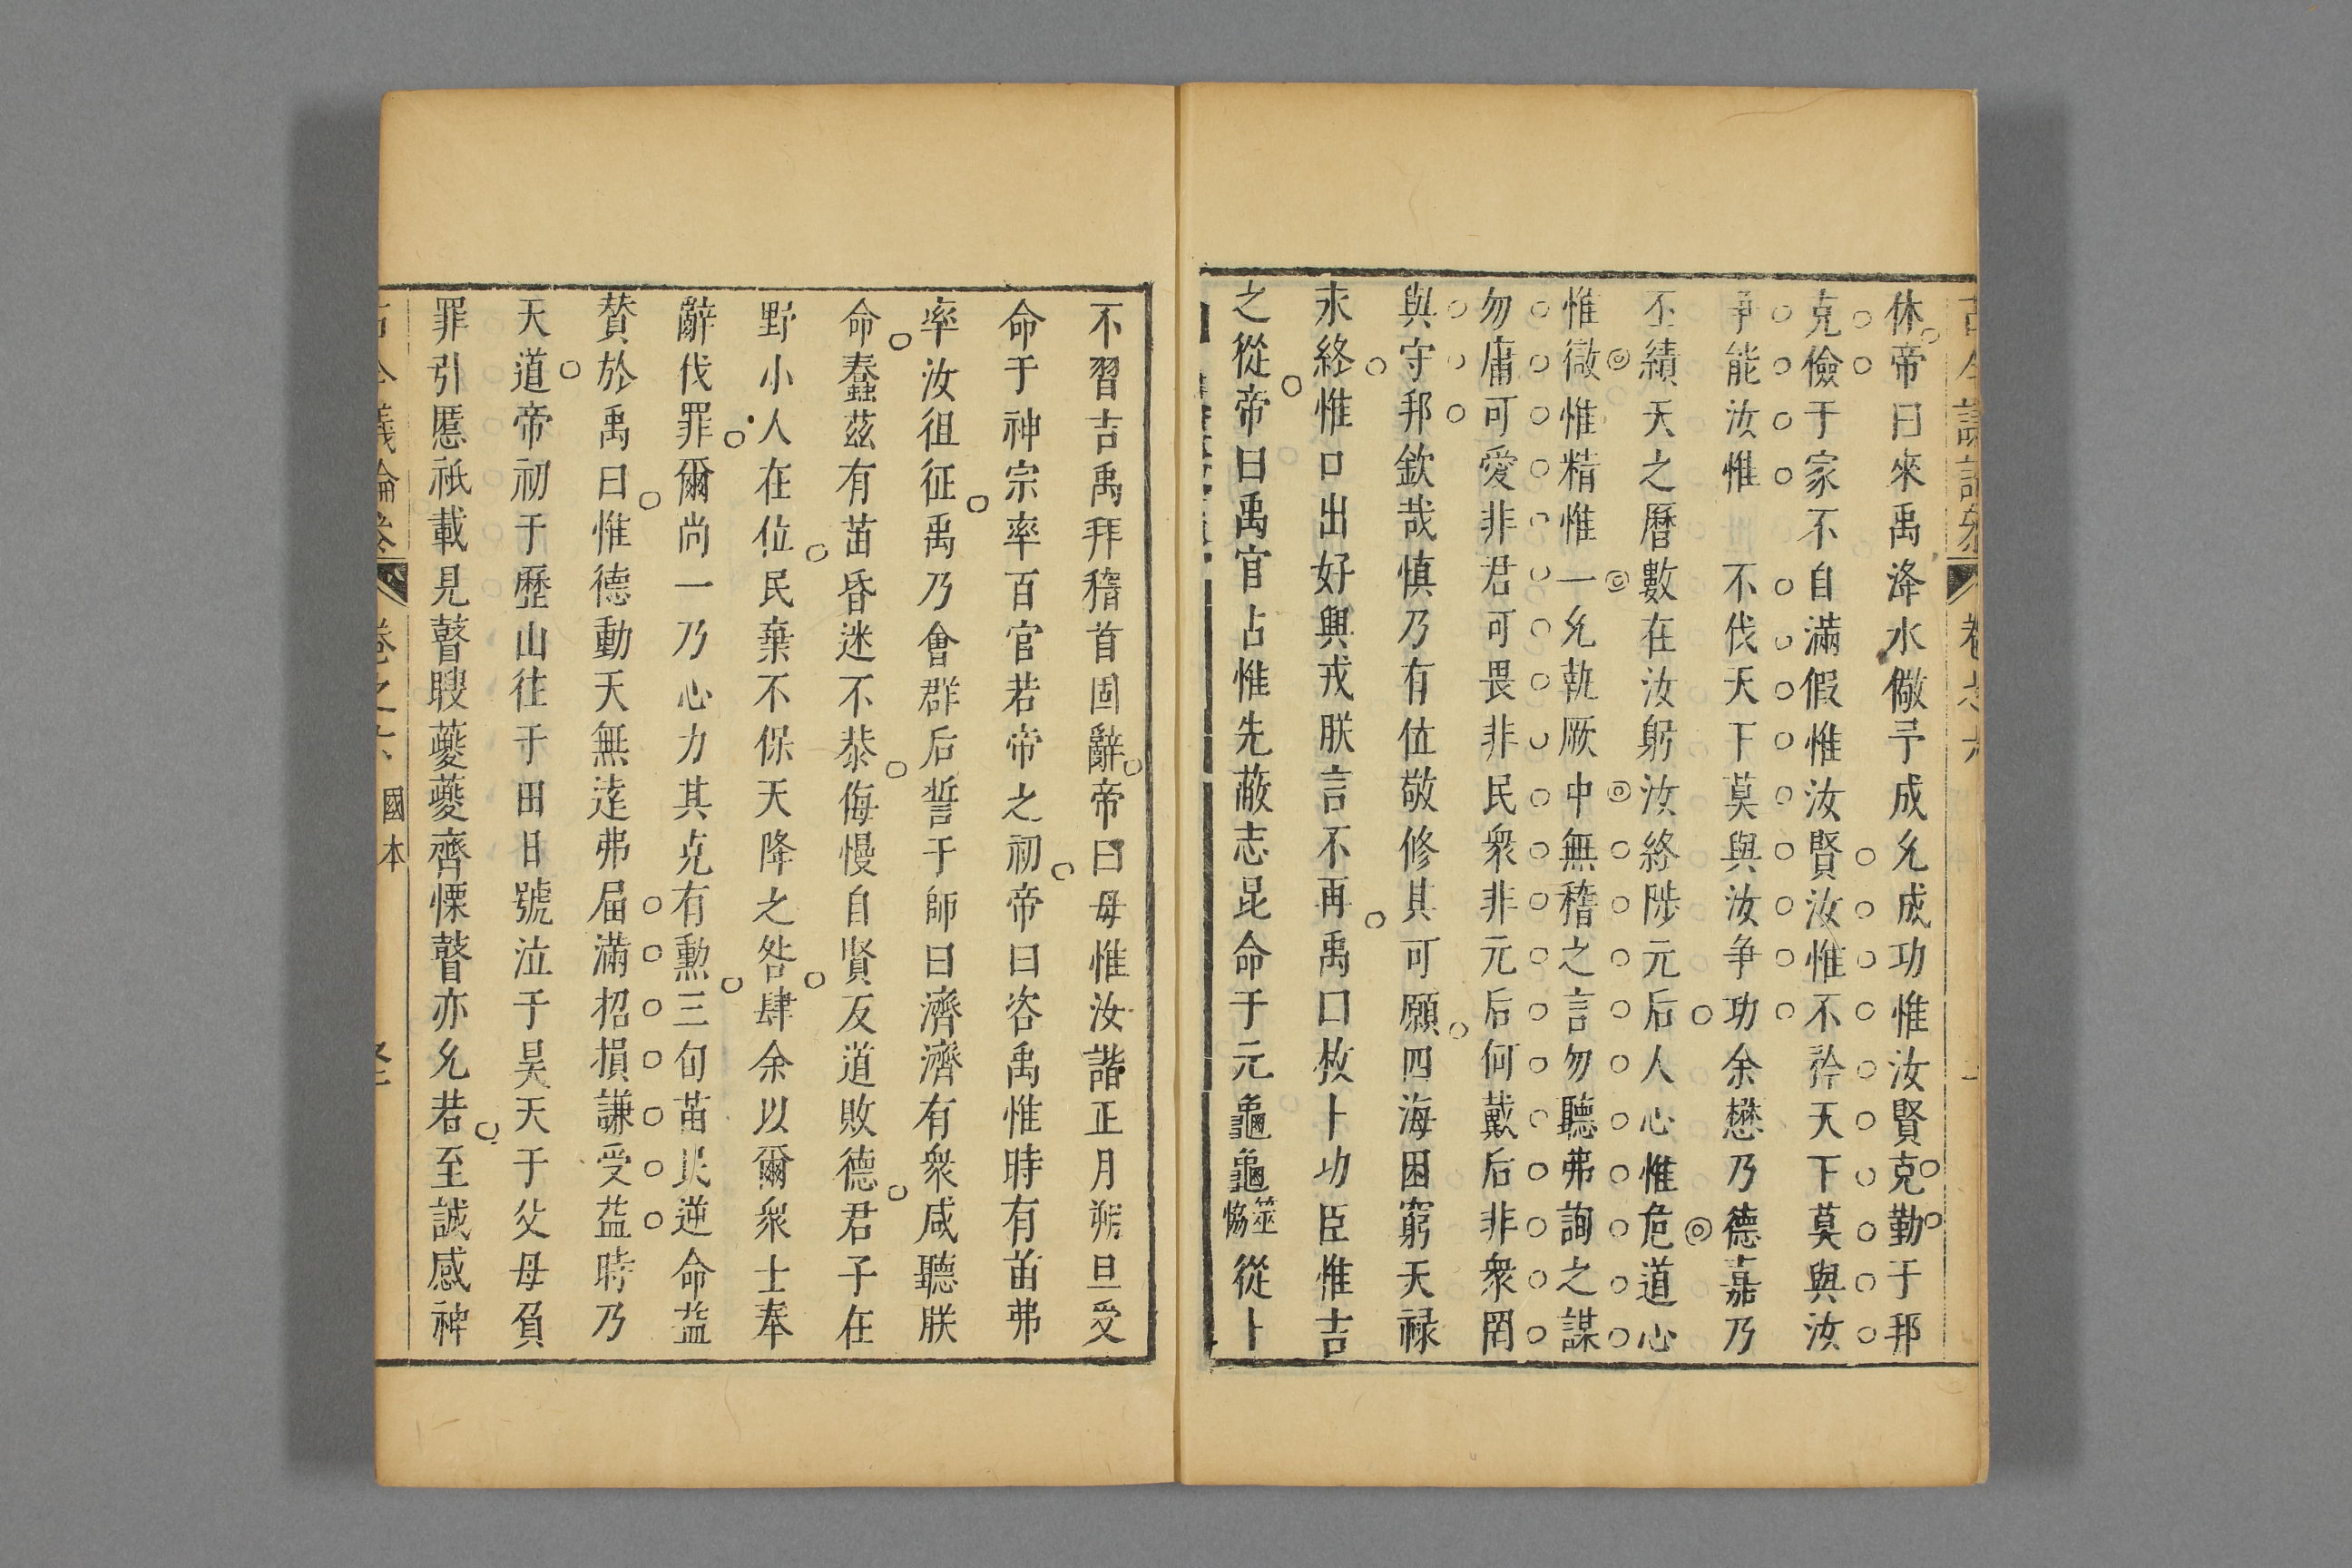 休帝曰來禹洚水儆予成允成功惟汝賢克勤于邦
克儉于家不自滿假惟汝賢汝惟不矜天下莫與汝
爭能汝惟不伐天下莫與汝爭功余懋乃德嘉乃
丕績天之曆數在汝躬汝終陟元后人心惟危道心
惟微惟精惟一允執厥中無稽之言勿聽弗詢之謀
勿庸可愛非君可畏非民衆非元后何戴后非衆罔
與守邦欽哉慎乃有位敬修其可願四海困窮天禄
永終惟口出好興戎朕言不再禹曰枚卜功臣惟吉
之從帝曰禹官占惟先蔽志昆命于元龜龜筮恊從卜
不習吉禹拜稽首固辭帝曰毋惟汝諧正月朔旦受
命于神宗率百官若帝之初帝曰咨禹惟時有苗弗
率汝徂征禹乃會群后誓于師曰濟濟有衆咸聽朕
命蠢茲有苗昏迷不恭侮慢自賢反道敗德君子在
野小人在位民棄不保天降之咎肆余以爾衆士奉
辭伐罪爾尚一乃心力其克有勲三旬苗民逆命益
贊於禹曰惟德動天無逺弗届滿招損謙受益時乃
天道帝初于歷山往于田日號泣于昊天于父母負
罪引慝祇載見瞽瞍夔夔齊慄瞽亦允若至誠感神
國本